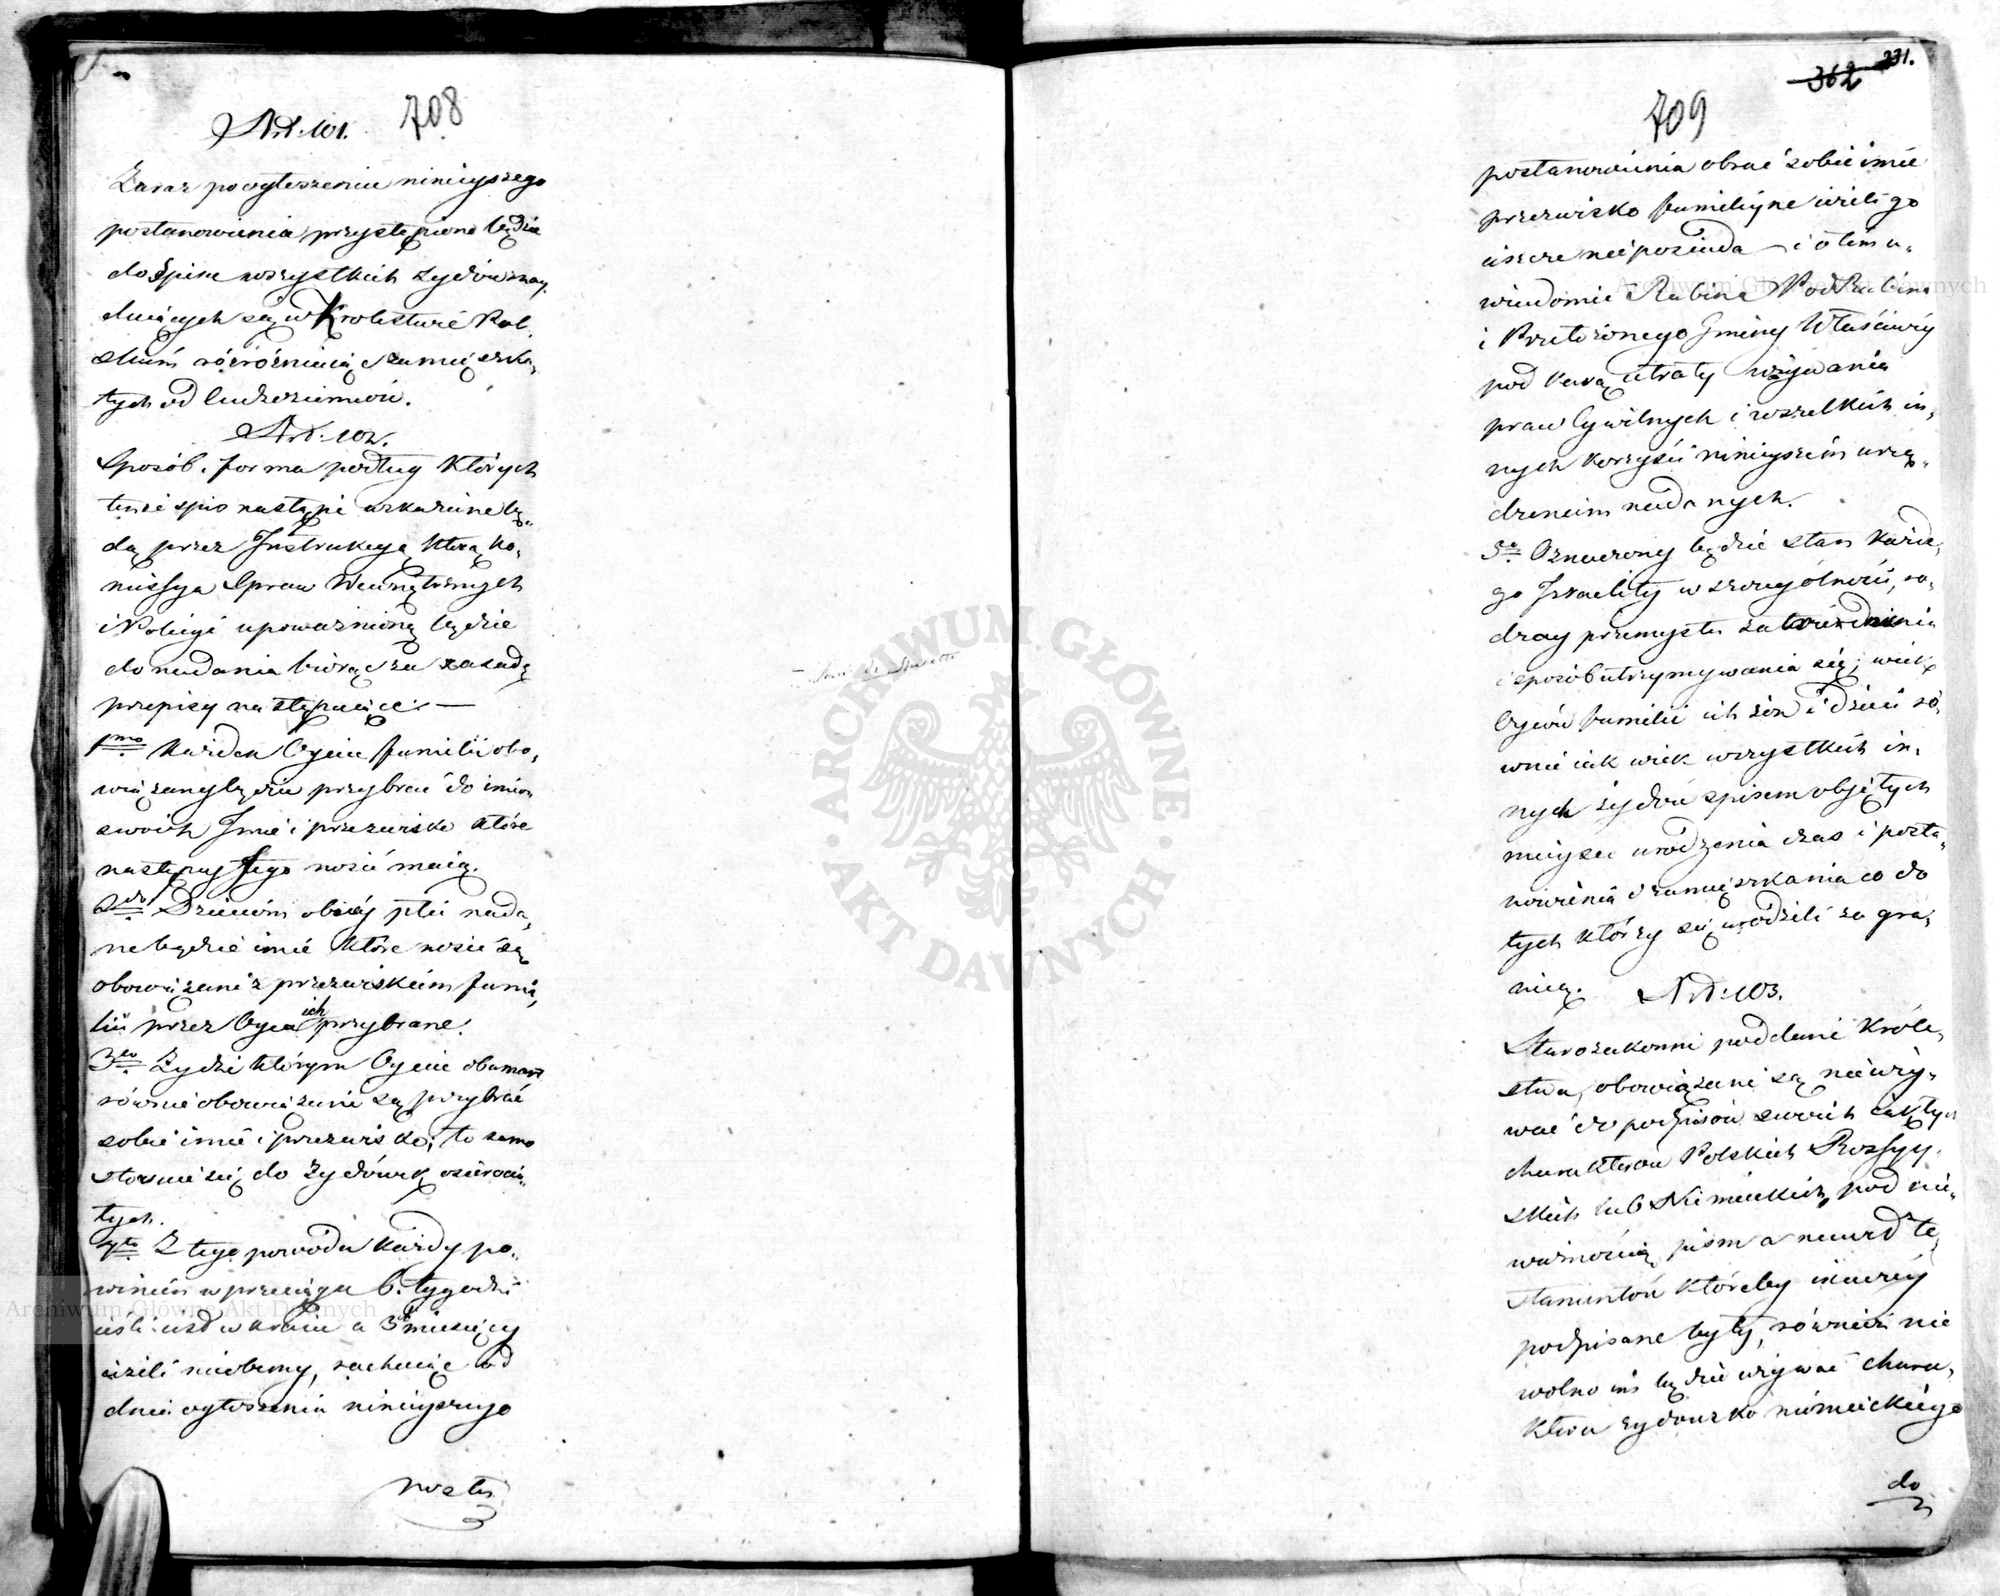 708
Art: 101.
Zaraz po ogłoszeniu ninieyszego
postanowienia przystąpiono będzie
do Spisu wszystkich żydów znay,
duiących się w Krolestwie Pol,
skiém rózróżniaiąc zamieszka,
łych od ludzoziemców.
Art: 102.
Sposób i forma podług których
tenże spis nastąpi wskazane bę,
dą przez Instrukcyą którą Ko,
missya Spraw Wewnętrznych
i Policyi upoważnioną będzie
do nadania biorąc za zasadę
przepisy następuiące: —
1mo Każden Oyciec familii obo,
wiązany będzie przybrać do imion
swoich Imie i przezwisko które
następnie iego nosić maią.
2do Dzieciom obiéy płci nada,
ne będzie imie które nosić są
obowiązani z przezwiskiem fami,
lii przez Oyca ich przybrane.
3tio Żydzi którym Oyciec obumarł
równie obowiązani są przybrać
sobie imie i przezwisko; to samo
stosuie się do Żydówek osieroco,
tych.
4to Z tego powodu każdy po,
winien w przeciągu 6. tygodni
iéśli iest w kraiu a 3ch miesięcy
ieżeli nieobecny, rachuiąc od
dnia ogłoszenia ninieyszego
postan
231.
362
709
postanowienia obrać sobie imie
przezwisko familiyne ieżeli go
ieszcze nie posiada — i o tém u,
wiadomić Rabina Pod Rabina
i Przełożonego Gminy Właściwéy
pod karą utraty używania
praw Cywilnych i wszelkich in,
nych korzyści ninieyszém urzą,
dzeniem nadanych.
5o Oznaczony będzie stan każde,
go Izraelity w szczególności, ro,
dzay przemysłu zatrudnienia
i sposób utrzymywania się; wiek
Oyców familii ich żon i dzieci ró,
wnie iak wiek wszystkich in,
nych żydów spisem obiętych
mieysce urodzenia czas i posta,
nowienia zamieszkania co do
tych którzy się urodzili za gra,
nicą.
Art: 103.
Starozakonni poddani Króle,
stwa, obowiązani są nie uży,
wać do podpisów swoich iak tych
charakterów Polskich Rossyy,
skich lub Niemieckich, pod nie,
ważnością pism a nawet te,
stamentów któreby inaczéy
podpisane były, również nie
wolno im będzie używać chara,
kteru żydowsko niemieckiego
do
Archiwum Główne Akt Dawnych
Archiwum Główne Akt Dawnych
ARCHIWUM GŁÓWNE · AKT DAWNYCH ·